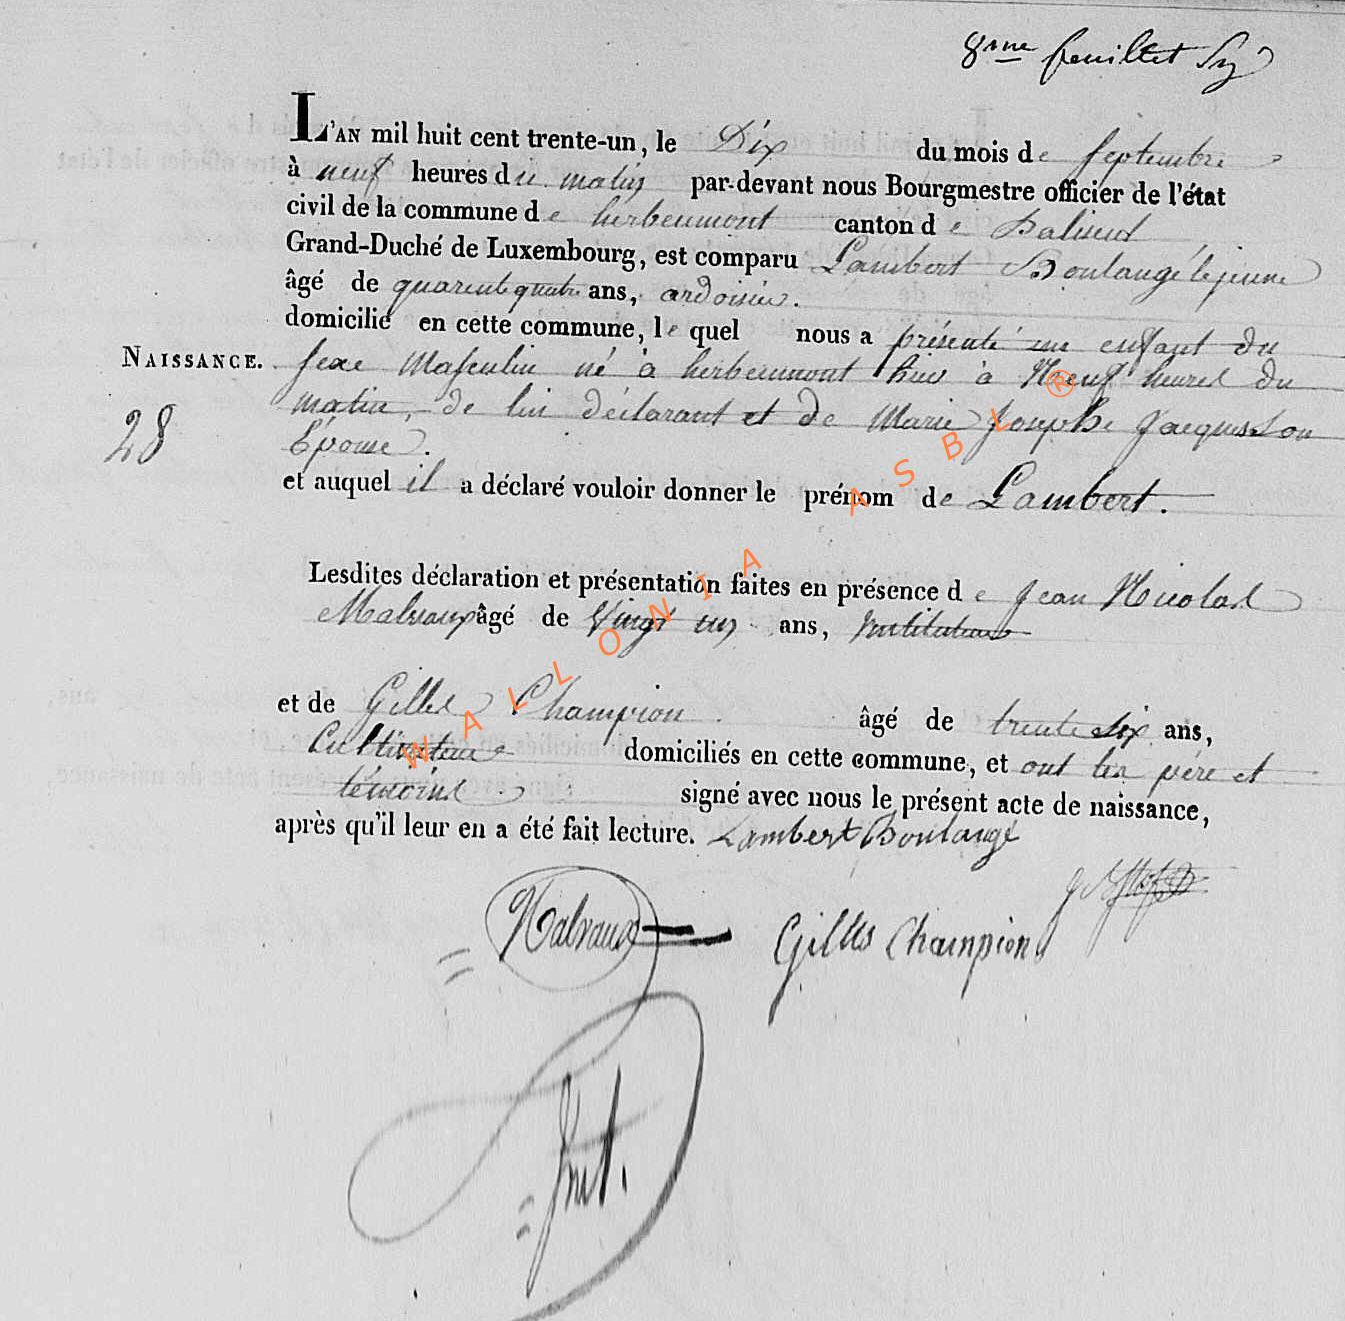 8me feuillet
L'AN mil huit cent trente-un, le Dix du mois de Septembre
à neuf heures du matin par-devant nous Bourgmestre officier de l'état
civil de la commune de herbeumont canton de Paliseul
Grand-Duché de Luxembourg, est comparu Lambert Boulangé lejeune
âgé de quarente quatre ans, ardoisier.
domicilié en cette commune, le quel nous a présenté un enfant du
NAISSANCE. sexe Masculin né à herbeumont hier à Neuf heures du
matin, de lui déclarant et de Marie Josephe Jacquisson
28 Épouse.
et auquel il a déclaré vouloir donner le prénom de Lambert.
Lesdites déclaration et présentation faites en présence de Jean Nicolas
Malvaux âgé de Vingt un ans, Instituteur
et de Gilles Champion âgé de trente six ans,
Cultivateur domiciliés en cette commune, et ont les père et
témoins signé avec nous le présent acte de naissance,
après qu'il leur en a été fait lecture. Lambert Boulangé
Malvaux Gilles Champion
Inst.
WALLONIA ASBL ®